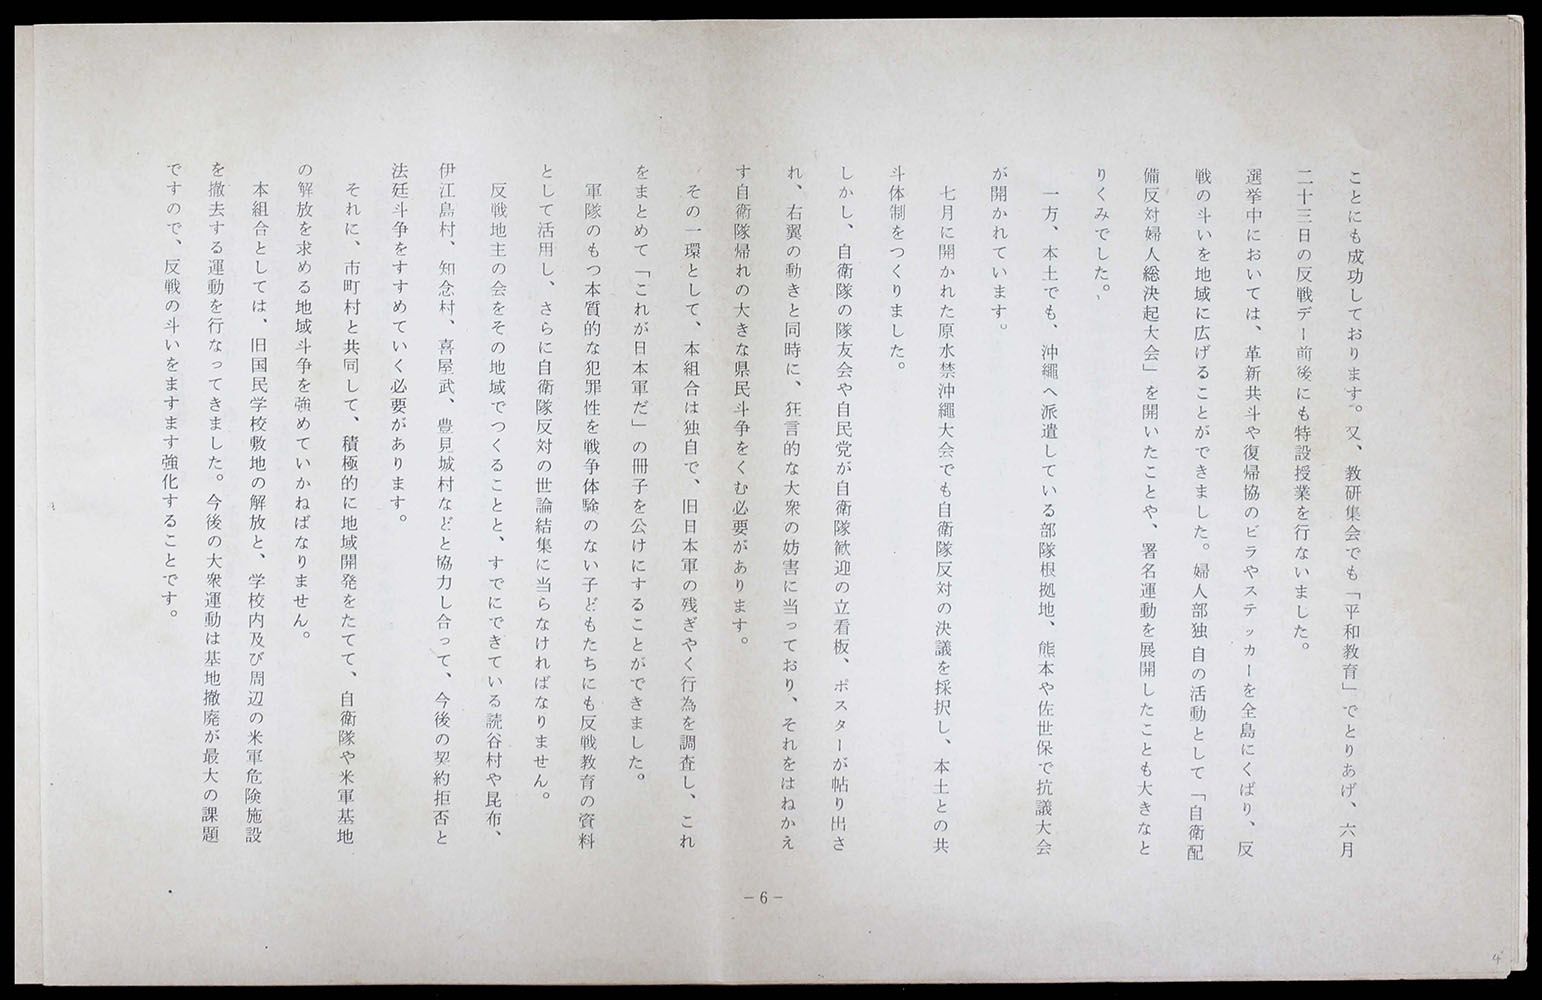 ことにも成功しております。又、教研集会でも「平和教育」でとりあげ、六月
二十三日の反戦デー前後にも特設授業を行ないました。
選挙中においては、革新共斗や復帰協のビラやステッカーを全島にくばり、反
戦の斗いを地域に広げることができました。婦人部独自の活動として「自衛配
備反対婦人総決起大会」を開いたことや、署名運動を展開したことも大きなと
りくみでした。
一方、本土でも、沖縄へ派遣している部隊根拠地、熊本や佐世保で抗議大会
が開かれています。
七月に開かれた原水禁沖縄大会でも自衛隊反対の決議を採択し、本土との共
斗体制をつくりました。
しかし、自衛隊の隊友会や自民党が自衛隊歓迎の立看板、ポスターが帖り出さ
れ、右翼の動きと同時に、狂言的な大衆の妨害に当っており、それをはねかえ
す自衛隊帰れの大きな県民斗争をくむ必要があります。
その一環として、本組合は独自で、旧日本軍の残ぎやく行為を調査し、これ
をまとめて「これが日本軍だ」の冊子を公けにすることができました。
軍隊のもつ本質的な犯罪性を戦争体験のない子どもたちにも反戦教育の資料
として活用し、さらに自衛隊反対の世論結集に当らなければなりません。
反戦地主の会をその地域でつくることと、すでにできている読谷村や昆布、
伊江島村、知念村、喜屋武、豊見城村などと協力し合って、今後の契約拒否と
法廷斗争をすすめていく必要があります。
それに、市町村と共同して、積極的に地域開発をたてて、自衛隊や米軍基地
の解放を求める地域斗争を強めていかねばなりません。
本組合としては、旧国民学校敷地の解放と、学校内及び周辺の米軍危険施設
を撤去する運動を行なってきました。今後の大衆運動は基地撤廃が最大の課題
ですので、反戦の斗いをますます強化することです。
－6－
4